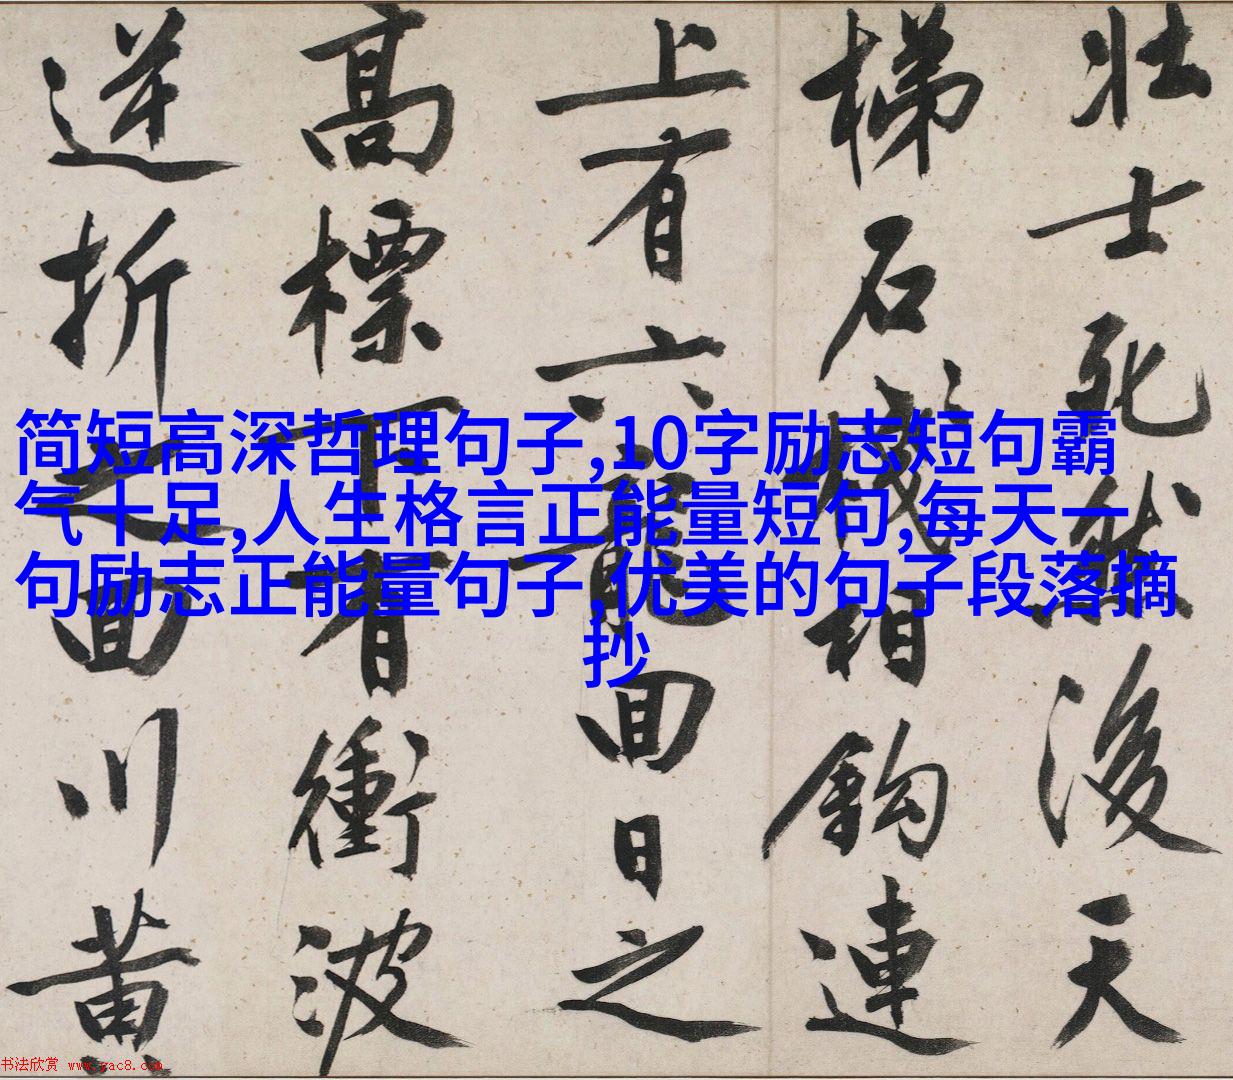 壮士死然後天
梯石棧相鈎連
上有六龍回日之
高標下有衝波
逆折之回川黄
简短高深哲理句子,10字励志短句霸
气十足,人生格言正能量短句,每天一
句励志正能量句子,优美的句子段落摘
抄
书法欣赏 www.yac8.com